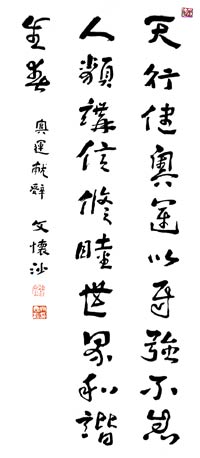 天行健奥運以自強不息
人類講信修睦世界和諧
生春
奥運献辞 文懷沙